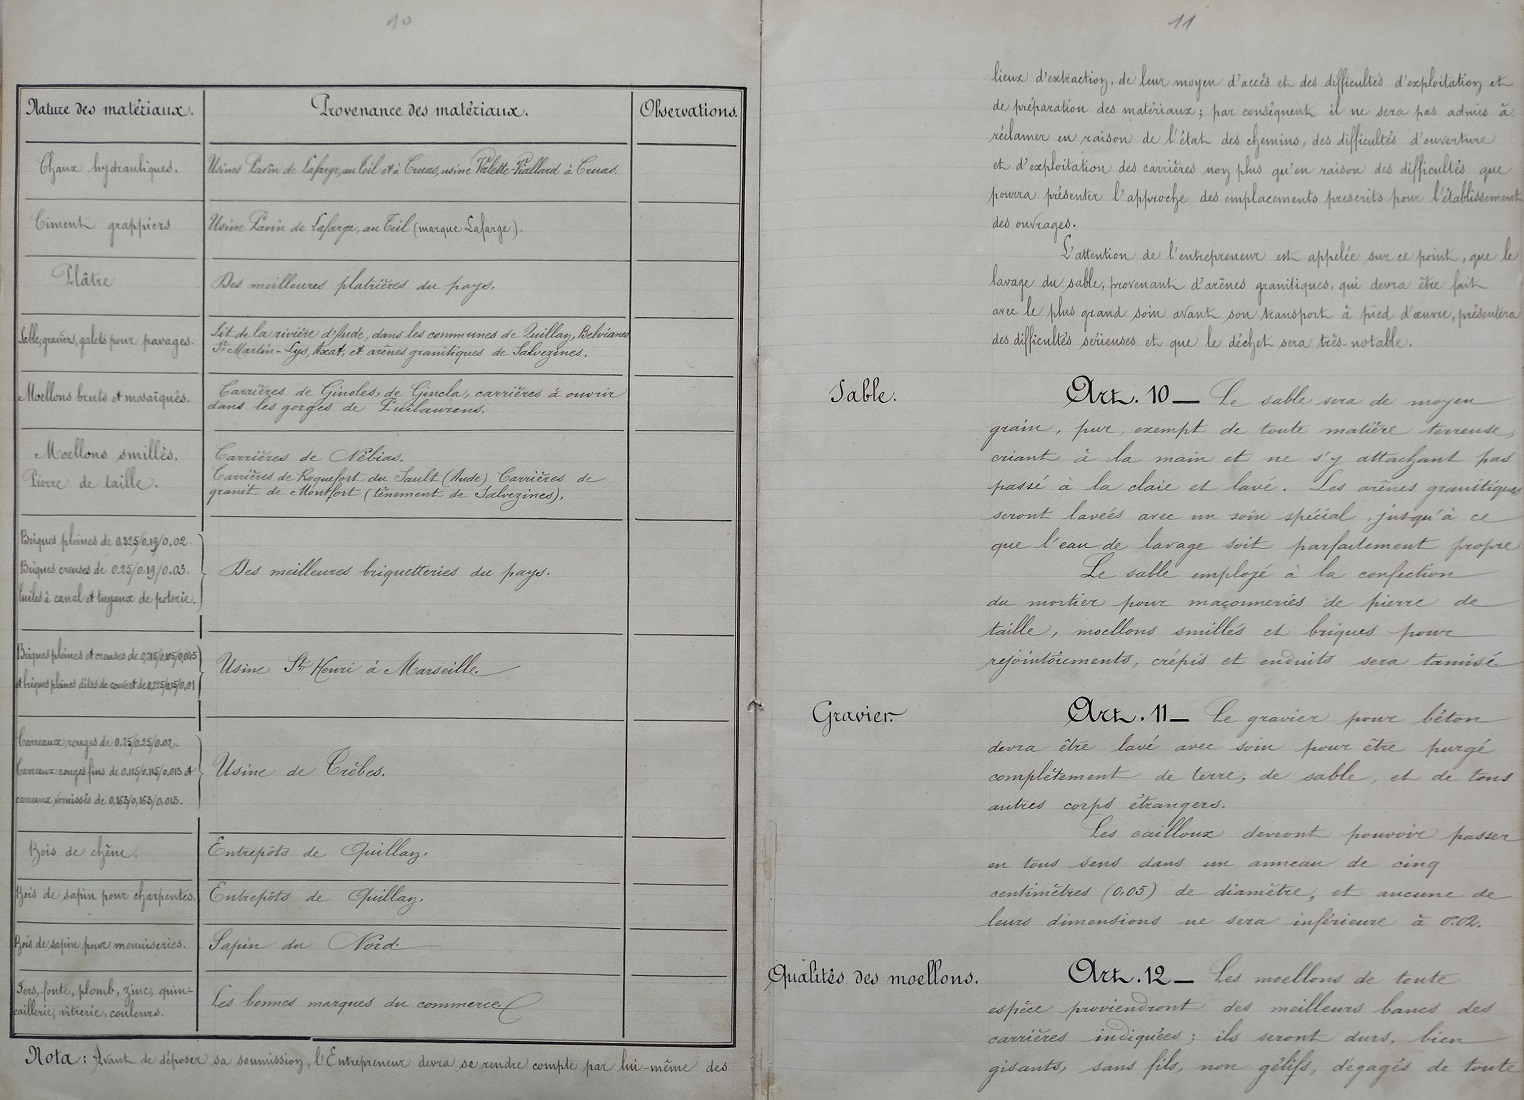 10
Nature des matériaux.
Provenance des matériaux.
Observations.
Chaux hydrauliques.
Usines Pavin de Lafarge, au Teil et à Cruas, usine Valette-Viallard à Cruas.
Ciment grappiers
Usine Pavin de Lafarge, au Teil (marque Lafarge).
Plâtre
Des meilleures platrières du pays.
Sable, graviers, galets pour pavages.
Lit de la rivière d'Aude, dans les communes de Quillan, Belvianes
St Martin-Lys, Axat, et arènes granitiques de Salvezines.
Moellons bruts et mosaïqués.
Carrières de Ginoles, de Gincla, carrières à ouvrir
dans les gorges de Puilaurens.
Moellons smillés.
Carrières de Nébias.
Pierre de taille.
Carrières de Roquefort du Sault (Aude) Carrières de
granit de Montfort (tènement de Salvezines).
Briques pleines de 0.225/0.19/0.02.
Briques creuses de 0.25/0.19/0.03.
Tuiles à canal et tuyaux de poterie.
Des meilleures briquetteries du pays.
Briques pleines et creuses de 0,215/0,105/0,045
et briques pleines dites de couvert de 0,225/0,15/0,01
Usine St Henri à Marseille.
Carreaux rouges de 0.25/0.25/0.02.
Carreaux rouges fins de 0,115/0,115/0,013 et
carreaux vernissés de 0,163/0,163/0,013.
Usine de Trèbes.
Bois de chêne.
Entrepôts de Quillan.
Bois de sapin pour charpentes.
Entrepôts de Quillan.
Bois de sapin pour menuiseries.
Sapin du Nord
Fers, fonte, plomb, zinc, quin-
caillerie, vitrerie, couleurs.
Les bonnes marques du commerce.
Nota: Avant de déposer sa soumission, l'Entrepreneur devra se rendre compte par lui-même des
11
lieux d'extraction, de leur moyen d'accès et des difficultés d'exploitation et
de préparation des matériaux; par conséquent il ne sera pas admis à
réclamer en raison de l'état des chemins, des difficultés d'ouverture
et d'exploitation des carrières non plus qu'en raison des difficultés que
pourra présenter l'approche des emplacements prescrits pour l'établissement
des ouvrages.
L'attention de l'entrepreneur est appelée sur ce point, que le
lavage du sable, provenant d'arènes granitiques, qui devra être fait
avec le plus grand soin avant son transport à pied d'œuvre, présentera
des difficultés sérieuses et que le déchet sera très-notable.
Sable.
Art. 10 — Le sable sera de moyen
grain, pur, exempt de toute matière terreuse,
criant à la main et ne s'y attachant pas
passé à la claie et lavé. Les arènes granitiques
seront lavées avec un soin spécial, jusqu'à ce
que l'eau de lavage soit parfaitement propre
Le sable employé à la confection
du mortier pour maçonneries de pierre de
taille, moellons smillés et briques pour
rejointoiements, crépis et enduits sera tamisé
Gravier.
Art. 11 — Le gravier pour béton
devra être lavé avec soin pour être purgé
complètement de terre, de sable, et de tous
autres corps étrangers.
Les cailloux devront pouvoir passer
en tous sens dans un anneau de cinq
centimètres (0.05) de diamètre, et aucune de
leurs dimensions ne sera inférieure à 0.02.
Qualités des moellons.
Art. 12 — Les moellons de toute
espèce proviendront des meilleurs bancs des
carrières indiquées; ils seront durs, bien
gisants, sans fils, non gélifs, dégagés de toute